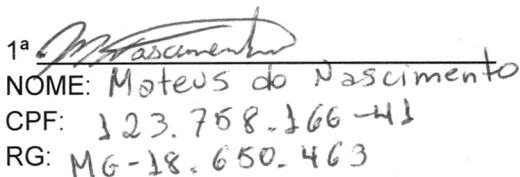 1ª M Nascimento
NOME: Mateus do Nascimento
CPF: 123.758.166-41
RG: MG-18.650.463